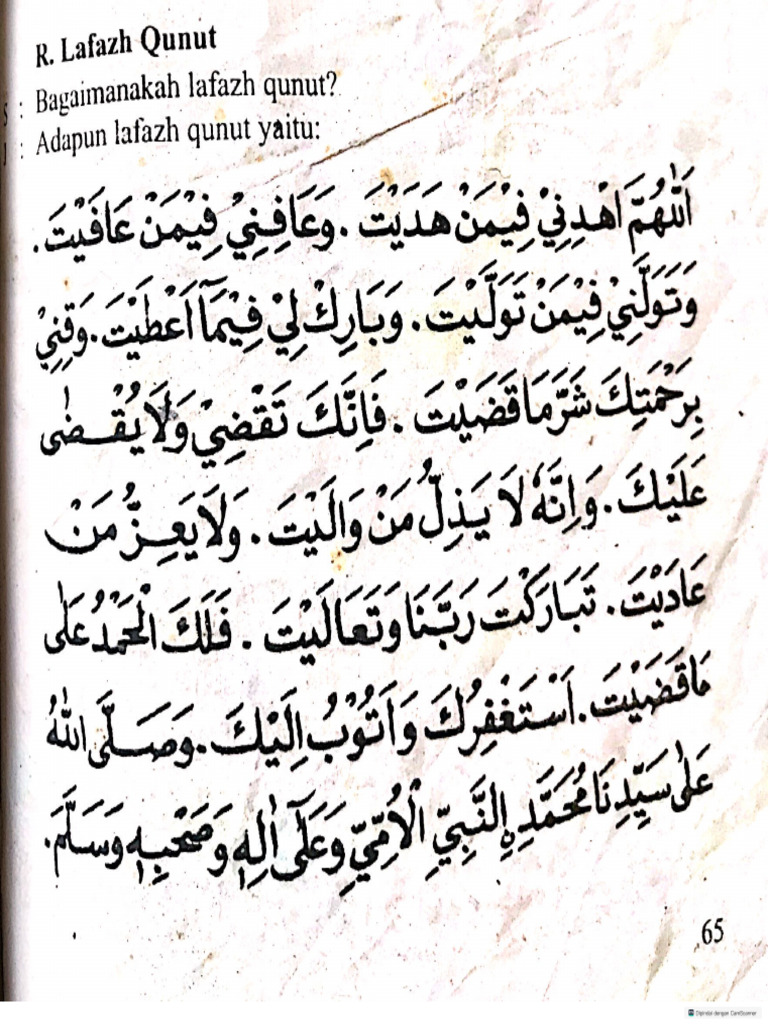 R. Lafazh Qunut
S : Bagaimanakah lafazh qunut?
: Adapun lafazh qunut yaitu:
اَللّٰهُمَّ اهْدِنِيْ فِيْمَنْ هَدَيْتَ . وَعَافِنِيْ فِيْمَنْ عَافَيْتَ .
وَتَوَلَّنِيْ فِيْمَنْ تَوَلَّيْتَ . وَبَارِكْ لِيْ فِيْمَآ اَعْطَيْتَ . وَقِنِيْ
بِرَحْمَتِكَ شَرَّمَا قَضَيْتَ . فَاِنَّكَ تَقْضِيْ وَلَا يُقْضٰى
عَلَيْكَ . وَاِنَّهٗ لَا يَذِلُّ مَنْ وَالَيْتَ . وَلَا يَعِزُّ مَنْ
عَادَيْتَ . تَبَارَكْتَ رَبَّنَا وَتَعَالَيْتَ . فَلَكَ الْحَمْدُ عَلٰى
مَا قَضَيْتَ . اَسْتَغْفِرُكَ وَاَتُوْبُ اِلَيْكَ . وَصَلَّى اللّٰهُ
عَلٰى سَيِّدِنَا مُحَمَّدِ ࣙالنَّبِيِّ الْاُمِّيِّ وَعَلٰٓى اٰلِهٖ وَصَحْبِهٖ وَسَلَّمَ .
65
Dipindai dengan CamScanner